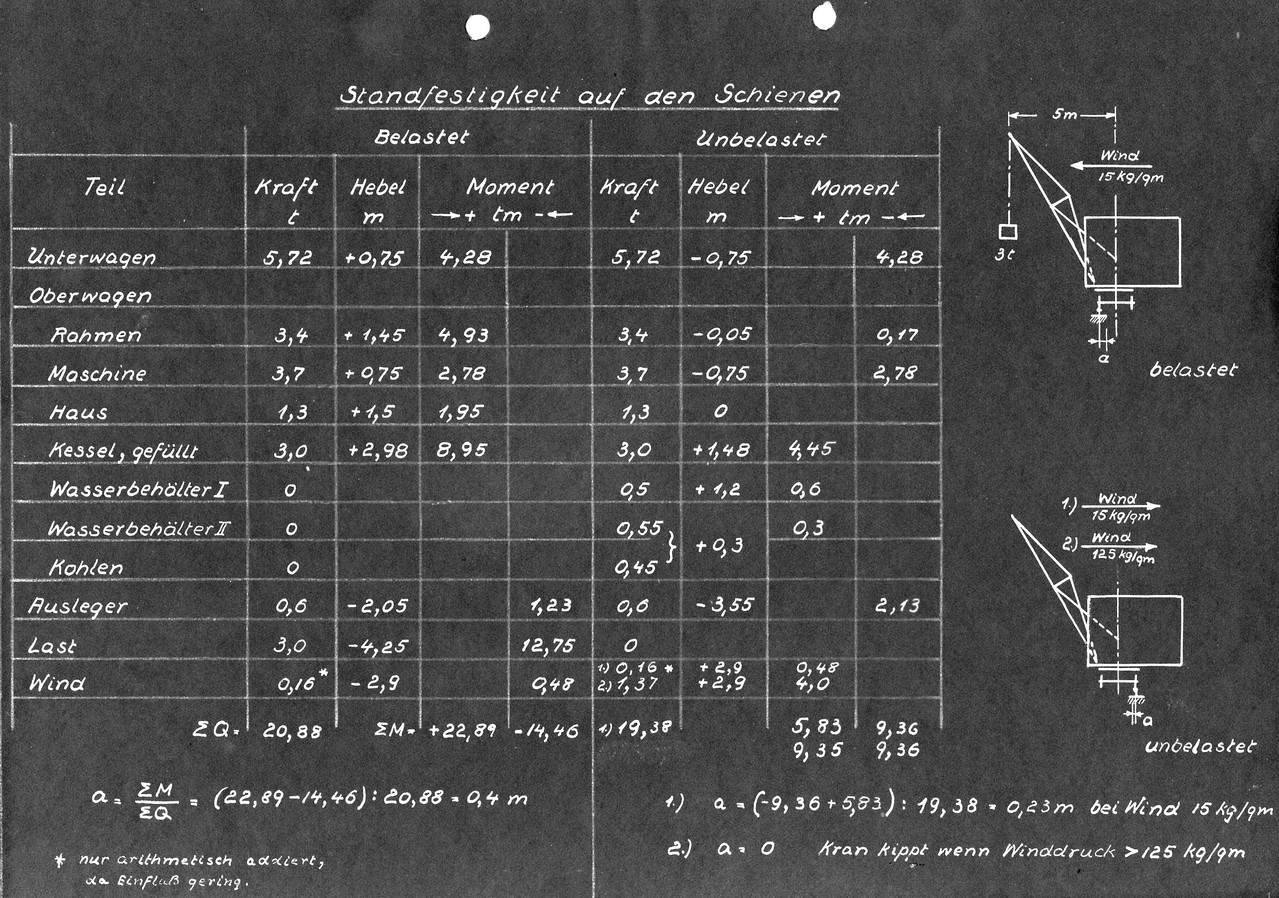 Standfestigkeit auf den Schienen
Belastet Unbelastet
Teil Kraft Hebel Moment Kraft Hebel Moment
t m →+ tm -← t m → + tm -←
Unterwagen 5,72 +0,75 4,28 5,72 -0,75 4,28
Oberwagen
Rahmen 3,4 +1,45 4,93 3,4 -0,05 0,17
Maschine 3,7 +0,75 2,78 3,7 -0,75 2,78
Haus 1,3 +1,5 1,95 1,3 0
Kessel, gefüllt 3,0 +2,98 8,95 3,0 +1,48 4,45
Wasserbehälter I 0 0,5 +1,2 0,6
Wasserbehälter II 0 0,55 } +0,3 0,3
Kohlen 0 0,45
Ausleger 0,6 -2,05 1,23 0,6 -3,55 2,13
Last 3,0 -4,25 12,75 0
Wind 0,16* -2,9 0,48 1.) 0,16 * +2,9 0,48
2.) 1,37 +2,9 4,0
ΣQ= 20,88 ΣM= +22,89 -14,46 1.) 19,38 5,83 9,36
9,35 9,36
a = ΣM/ΣQ = (22,89-14,46) : 20,88 = 0,4 m
* nur arithmetisch addiert,
da Einfluß gering.
1.) a = (-9,36 + 5,83) : 19,38 = 0,23m bei Wind 15 kg/qm
2.) a = 0 Kran kippt wenn Winddruck > 125 kg/qm
5m
Wind
15 kg/qm
3t
a
belastet
1.) Wind
15 kg/qm
2.) Wind
125 kg/qm
a
unbelastet